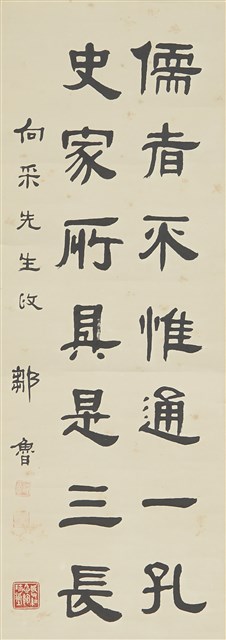 儒者不惟通一孔
史家所具是三長
向采先生政 鄒魯